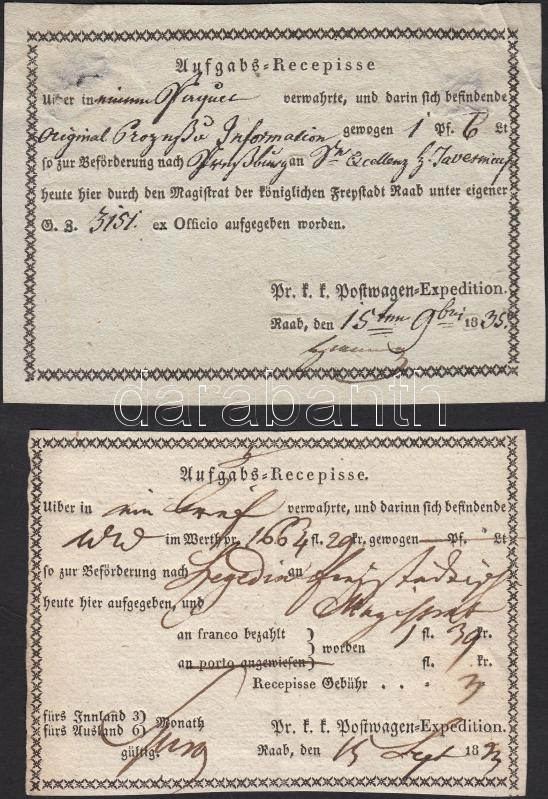 Aufgabs-Recepisse
Uiber in einem verwahrte, und darin sich befindende
Original Information gewogen 1 Pf. 6 Lt
so zur Beförderung nach Preßburg an Excellenz H. Tavernicus
heute hier durch den Magistrat der königlichen Freystadt Raab unter eigener
G. Z. 3151. ex Officio aufgegeben worden.
Pr. k. k. Postwagen-Expedition.
Raab, den 15ten 9bri 1835.
darabanth
Aufgabs-Recepisse.
Uiber in ein Brief verwahrte, und darinn sich befindende
WW im Werth pr. 1664 fl. 29 kr. gewogen Pf. Lt
so zur Beförderung nach Szegedin an
heute hier aufgegeben, und Magistrat
an franco bezahlt } worden 1 fl. 39 kr.
an porto angewiesen } fl. kr.
Recepisse Gebühr . . . 3
fürs Innland 3 } Monath
fürs Ausland 6 } gültig.
Pr. k. k. Postwagen-Expedition.
Raab, den 15 Sept 18